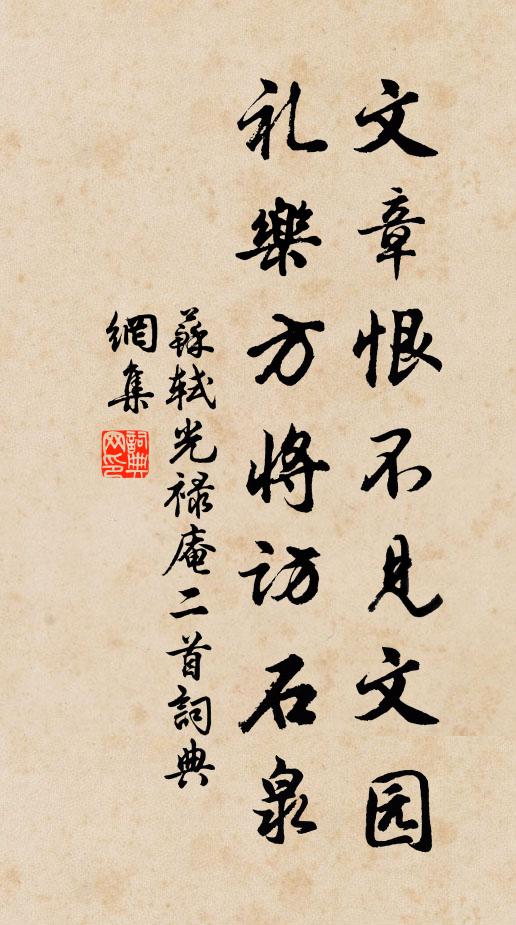 文章恨不見文园
礼樂方将访石泉
蘇軾光禄庵二首詞典
網集
詞典网印